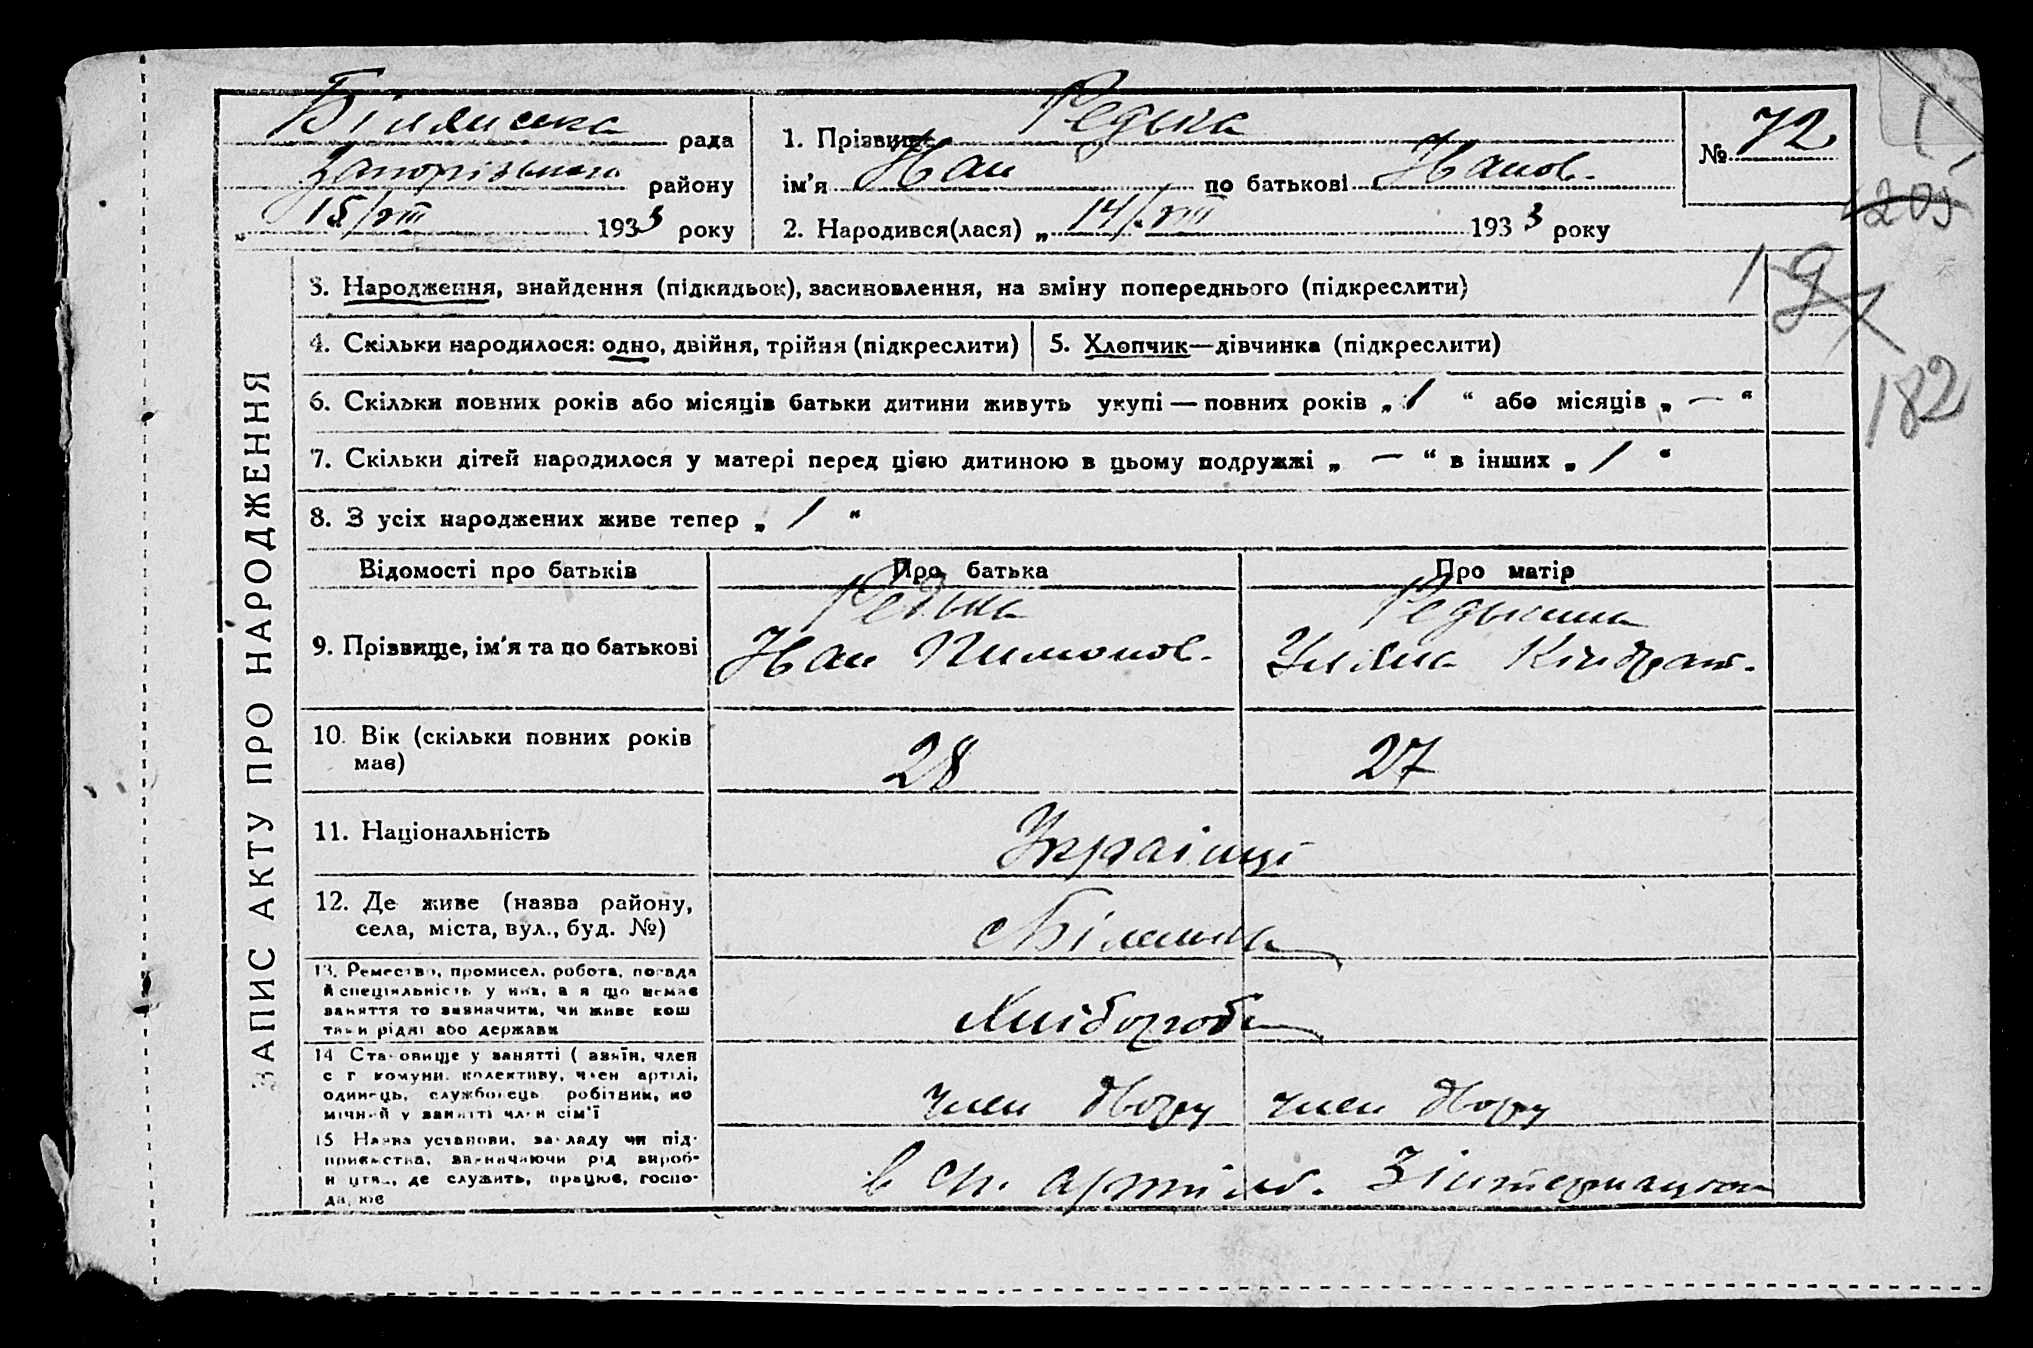 Біляиська рада
Запорізького району
„ 15/VIII 1933 року
1. Прізвище Редька
ім'я Иван по батькові Иванов.
2. Народився(лася) „ 14/VIII 1933 року
№ 72
205
182
ЗАПИС АКТУ ПРО НАРОДЖЕННЯ
3. Народження, знайдення (підкидьок), засиновлення, на зміну попереднього (підкреслити)
4. Скільки народилося: одно, двійня, трійня (підкреслити)
5. Хлопчик—дівчинка (підкреслити)
6. Скільки повних років або місяців батьки дитини живуть укупі — повних років „ 1 “ або місяців „ — “
7. Скільки дітей народилося у матері перед цією дитиною в цьому подружжі „ — “ в інших „ 1 “
8. З усіх народжених живе тепер „ 1 “
Відомості про батьків
Про батька
Про матір
9. Прізвище, ім'я та по батькові
Редька
Иван Пимонов.
Редькина
Уляна Кіндрат.
10. Вік (скільки повних років
має)
28
27
11. Національність
Украінці
12. Де живе (назва району,
села, міста, вул., буд. №)
13. Ремество, промисел, робота, посада
й спеціяльність у них, а я що немає
заняття то визначити, чи живе кош
тами рідні або держави
Хлібороби
14 Становище у занятті ( азяїн, член
с г комуни, колективу, член артілі,
одинець, службовець робітник, по
мічний у занятті член сім'ї
член двору член двору
15 Назва установи, закладу чи під-
приємства, зазначаючи рід вироб-
ництва, де служить, працює, госпо-
дарює
в сг. артілі. Зінтернаціон